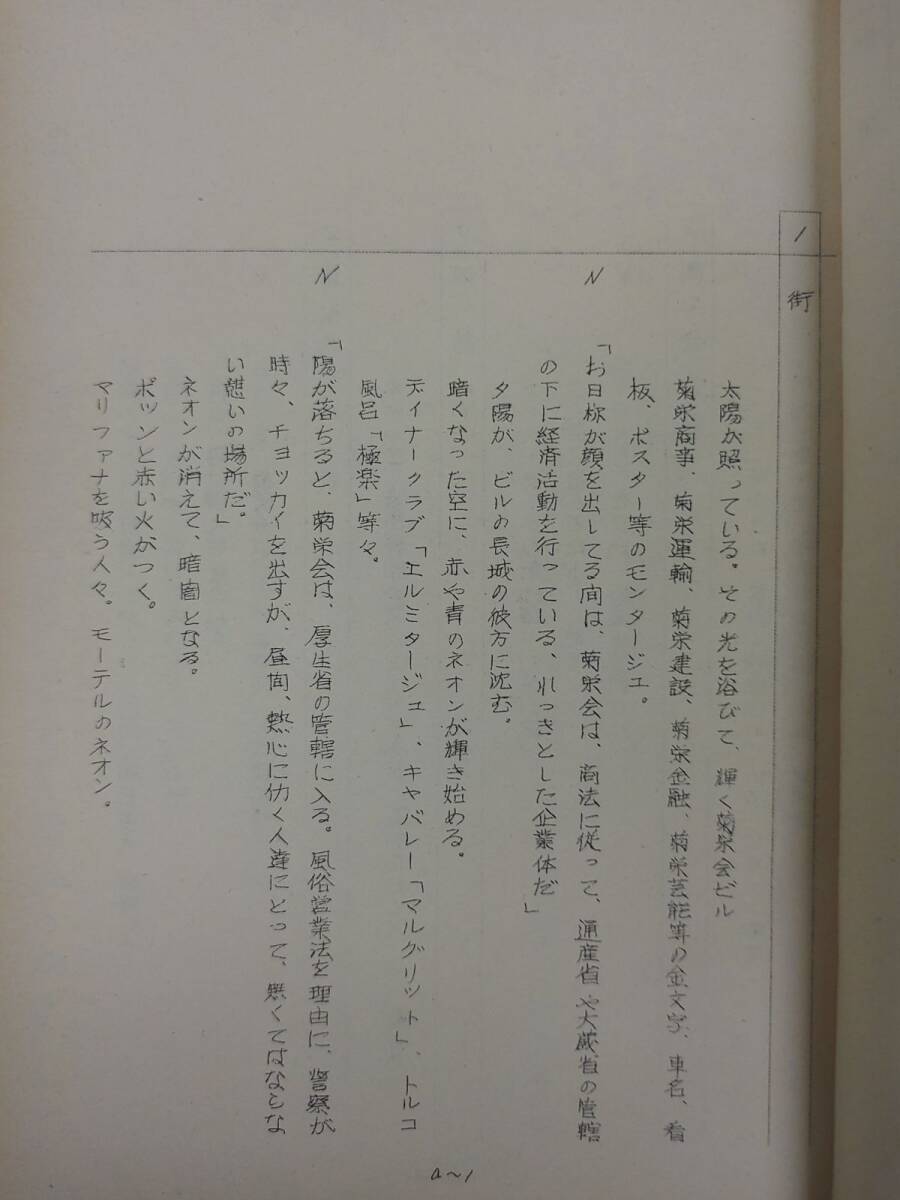 1 街
太陽が照っている。その光を浴びて、輝く菊栄会ビル
菊栄商事、菊栄運輸、菊栄建設、菊栄金融、菊栄芸能等の金文字、車名、看
板、ポスター等のモンタージュ。
N「お日様が顔を出してる間は、菊栄会は、商法に従って、通産省や大蔵省の管轄
の下に経済活動を行っている、れっきとした企業体だ」
夕陽が、ビルの長城の彼方に沈む。
暗くなった空に、赤や青のネオンが輝き始める。
ディナークラブ「エルミタージュ」、キャバレー「マルグリット」、トルコ
風呂「極楽」等々。
N「陽が落ちると、菊栄会は、厚生省の管轄に入る。風俗営業法を理由に、警察が
時々、チョッカイを出すが、昼間、熱心に仂く人達にとって、無くてはならな
い憩いの場所だ。」
ネオンが消えて、暗闇となる。
ポツンと赤い火がつく。
マリファナを吸う人々。モーテルのネオン。
a~1